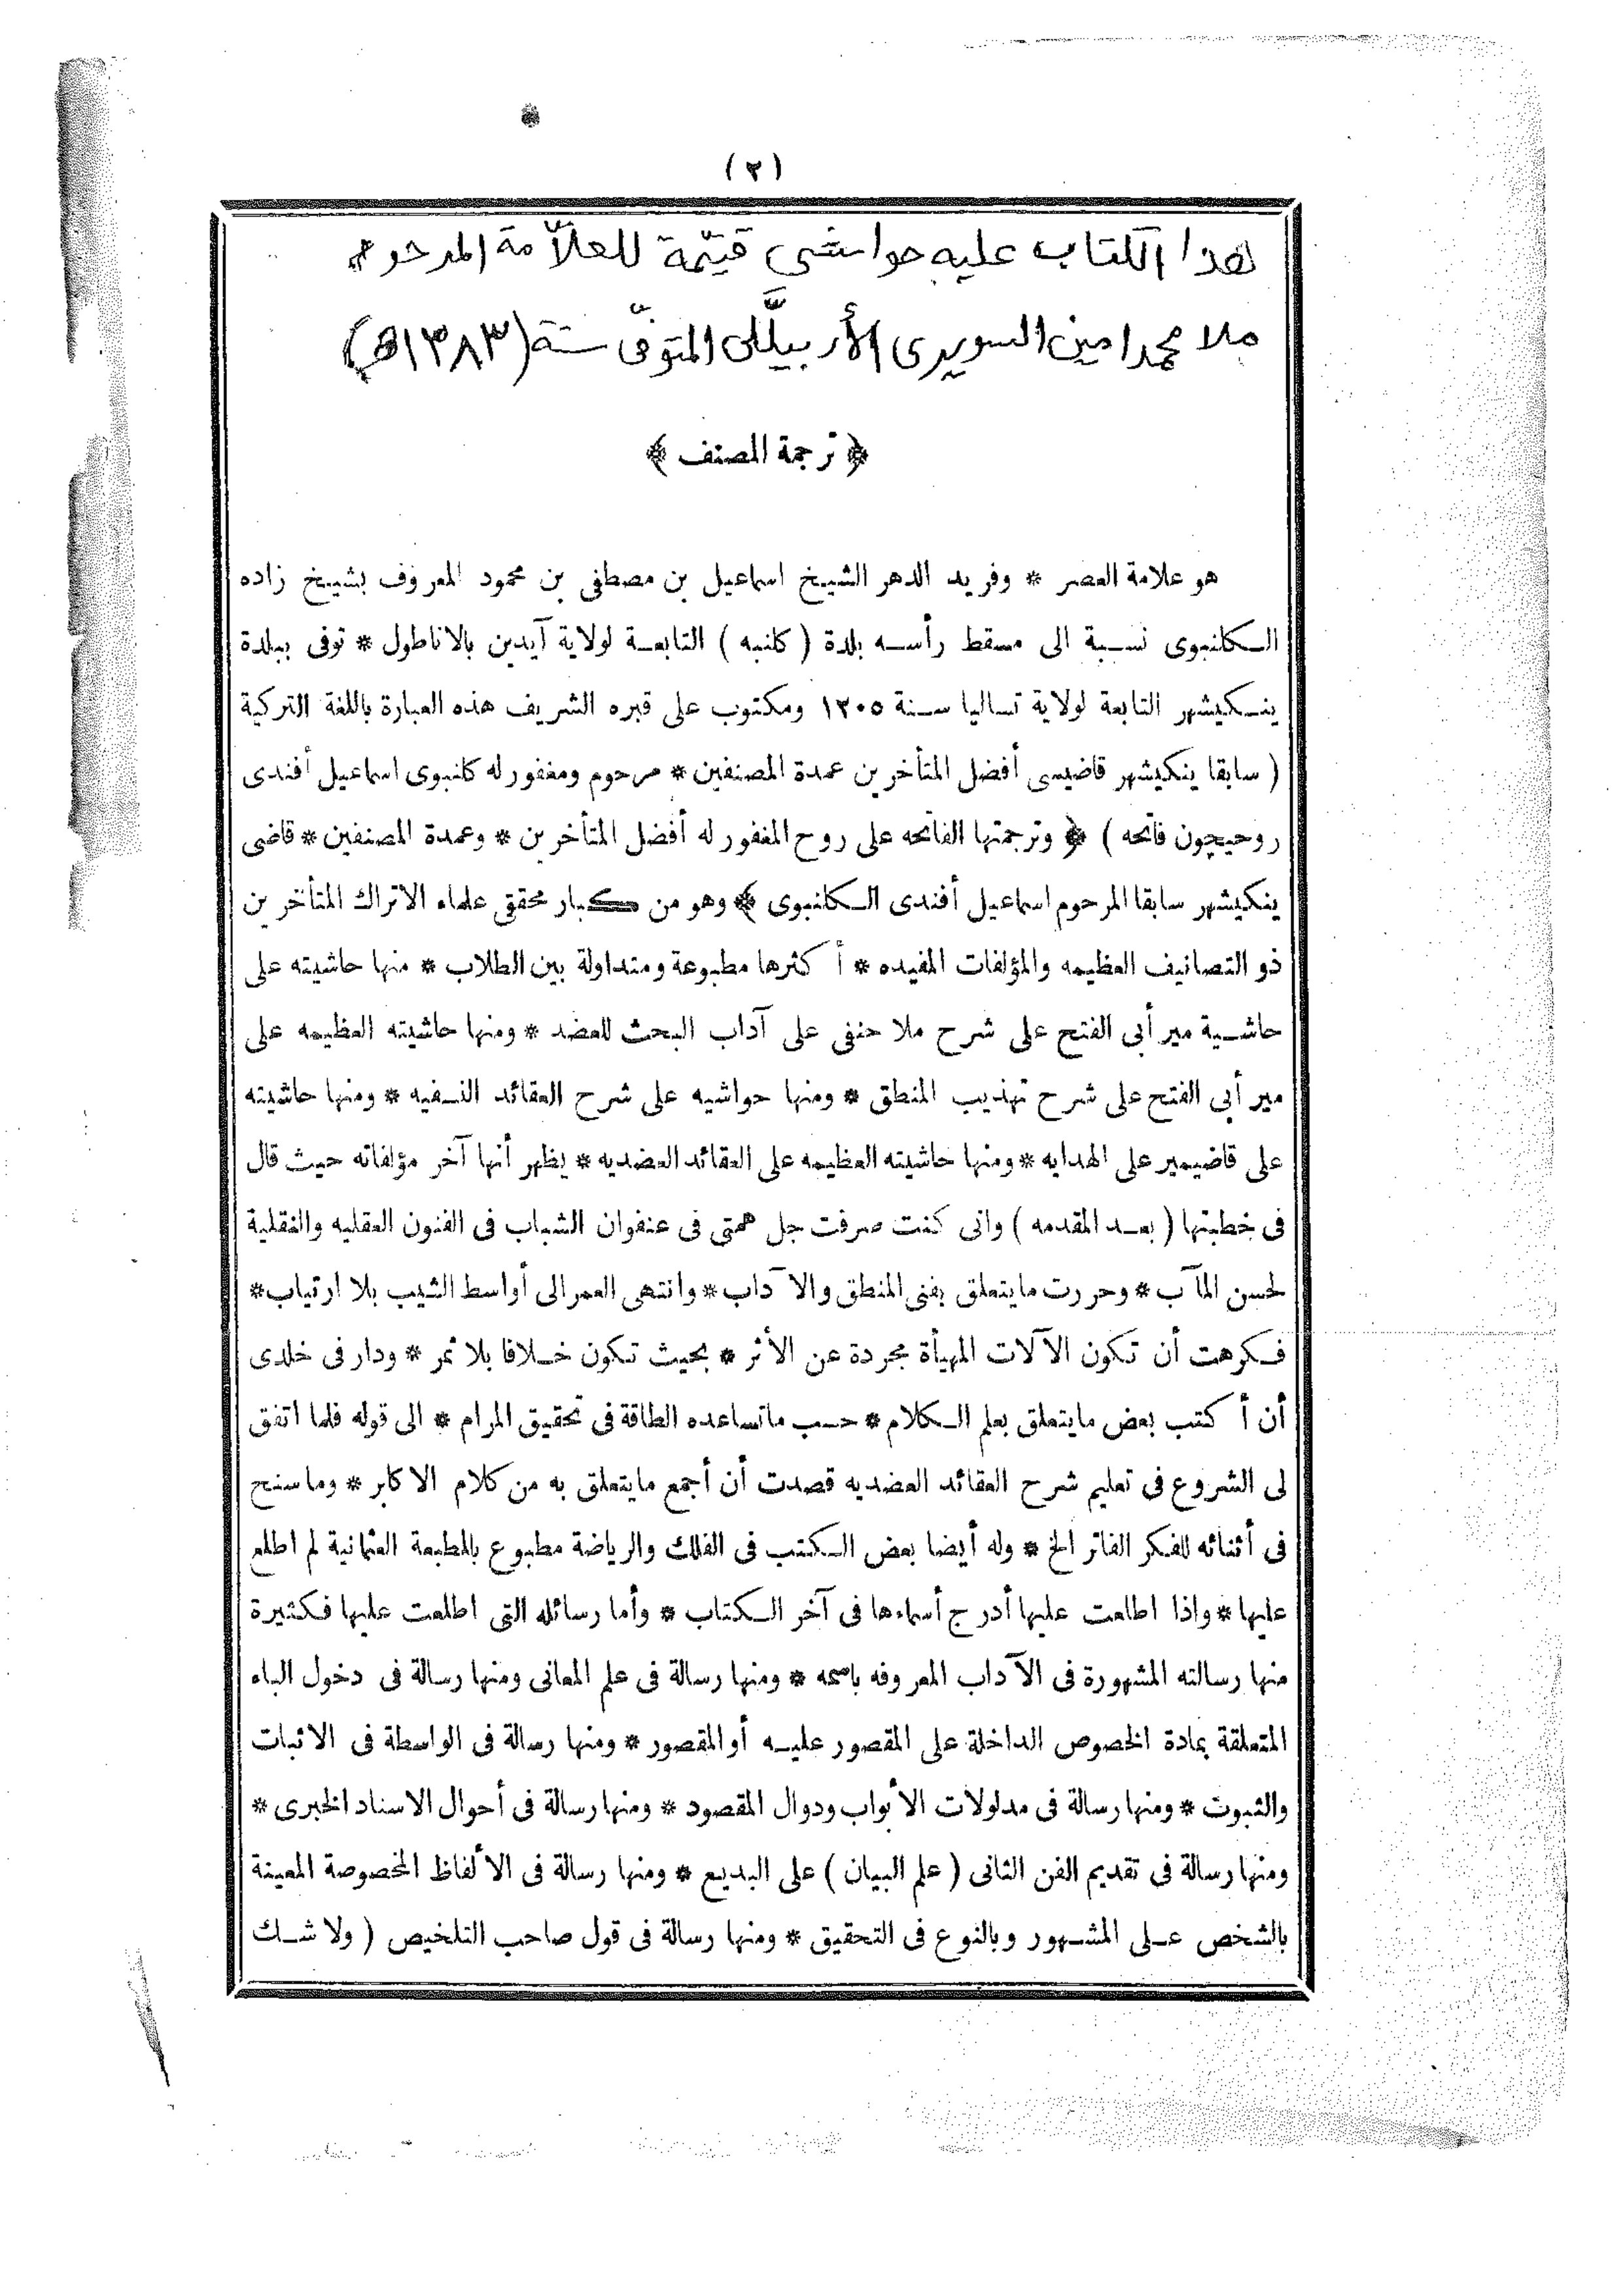 (٢)
هذا الكتاب عليه حواشى قيّمة للعلاّمة المرحوم
ملا محمد امين السويرى الأربيلّى المتوفّى سنة (١٣٨٣هـ)
﴿ ترجمة المصنف ﴾
هو علامة العصر * وفريد الدهر الشيخ اسماعيل بن مصطفى بن محمود المعروف بشيخ زاده
الكلنبوى نسبة الى مسقط رأسه بلدة ( كلنبه ) التابعة لولاية آيدين بالاناطول * توفى ببلدة
ينكيشهر التابعة لولاية تساليا سنة ١٢٠٥ ومكتوب على قبره الشريف هذه العبارة باللغة التركية
( سابقا ينكيشهر قاضيسى أفضل المتأخرين عمدة المصنفين * مرحوم ومغفور له كلنبوى اسماعيل أفندى
روحيچون فاتحه ) ﴿ وترجمتها الفاتحه على روح المغفور له أفضل المتأخرين * وعمدة المصنفين * قاضى
ينكيشهر سابقا المرحوم اسماعيل أفندى الكلنبوى ﴾ وهو من كبار محققى علماء الاتراك المتأخرين
ذو التصانيف العظيمه والمؤلفات المفيده * أكثرها مطبوعة ومتداولة بين الطلاب * منها حاشيته على
حاشية مير أبى الفتح على شرح ملا حنفى على آداب البحث للعضد * ومنها حاشيته العظيمه على
مير أبى الفتح على شرح تهذيب المنطق * ومنها حواشيه على شرح العقائد النسفيه * ومنها حاشيته
على قاضيمير على الهدايه * ومنها حاشيته العظيمه على العقائد العضديه * يظهر أنها آخر مؤلفاته حيث قال
فى خطبتها ( بعد المقدمه ) وانى كنت صرفت جل همتى فى عنفوان الشباب فى الفنون العقليه والنقلية
لحسن المآب * وحررت مايتعلق بفنى المنطق والآداب * وانتهى العمر الى أواسط الشيب بلا ارتياب *
فكرهت أن تكون الآلات المهيأة مجردة عن الأثر * بحيث تكون خلافا بلا ثمر * ودار فى خلدى
أن أكتب بعض مايتعلق بعلم الكلام * حسب ماتساعده الطاقة فى تحقيق المرام * الى قوله فلما اتفق
لى الشروع فى تعليم شرح العقائد العضديه قصدت أن أجمع مايتعلق به من كلام الاكابر * وما سنح
فى أثنائه للفكر الفاتر الخ * وله أيضا بعض الكتب فى الفلك والرياضة مطبوع بالمطبعة العثمانية لم اطلع
عليها * واذا اطلعت عليها أدرج أسماءها فى آخر الكتاب * وأما رسائله التى اطلعت عليها فكثيرة
منها رسالته المشهورة فى الآداب المعروفه باسمه * ومنها رسالة فى علم المعانى ومنها رسالة فى دخول الباء
المتعلقة بمادة الخصوص الداخلة على المقصور عليه أو المقصور * ومنها رسالة فى الواسطة فى الاثبات
والثبوت * ومنها رسالة فى مدلولات الأبواب ودوال المقصود * ومنها رسالة فى أحوال الاسناد الخبرى *
ومنها رسالة فى تقديم الفن الثانى ( علم البيان ) على البديع * ومنها رسالة فى الألفاظ المخصوصة المعينة
بالشخص على المشهور وبالنوع فى التحقيق * ومنها رسالة فى قول صاحب التلخيص ( ولا شك